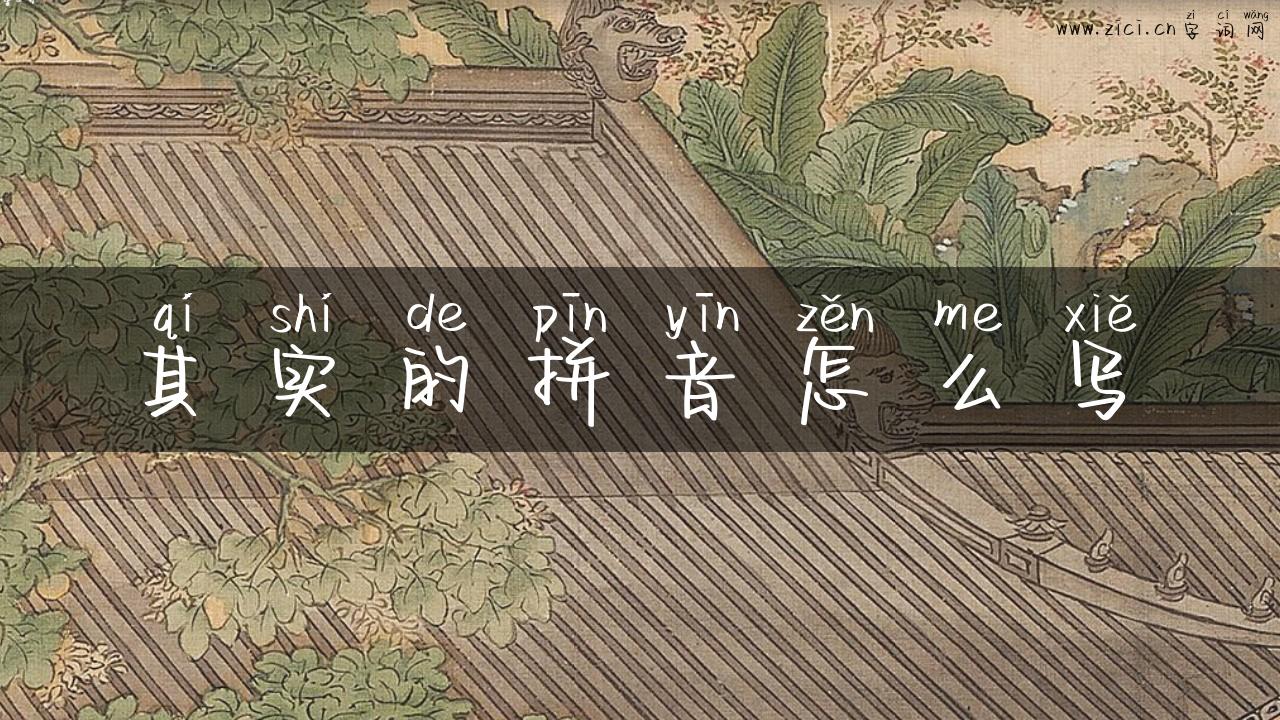 zì cí wǎng
www.zici.cn 字词网
qí shí de pīn yīn zěn me xiě
其实的拼音怎么写